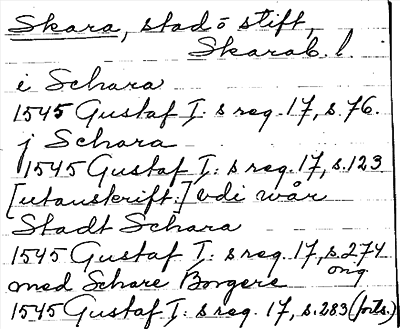 Skara, stad o stift,
Skarab. l.
i Schara
1545 Gustaf I:s reg. 17, s. 76.
j Schara
1545 Gustaf I:s reg. 17, s. 123
[utanskrift:] vdi wår
Stadt Schara
1545 Gustaf I:s reg. 17, s. 274
med Schare Borgere
1545 Gustaf I:s reg. 17, s. 283 (forts.)